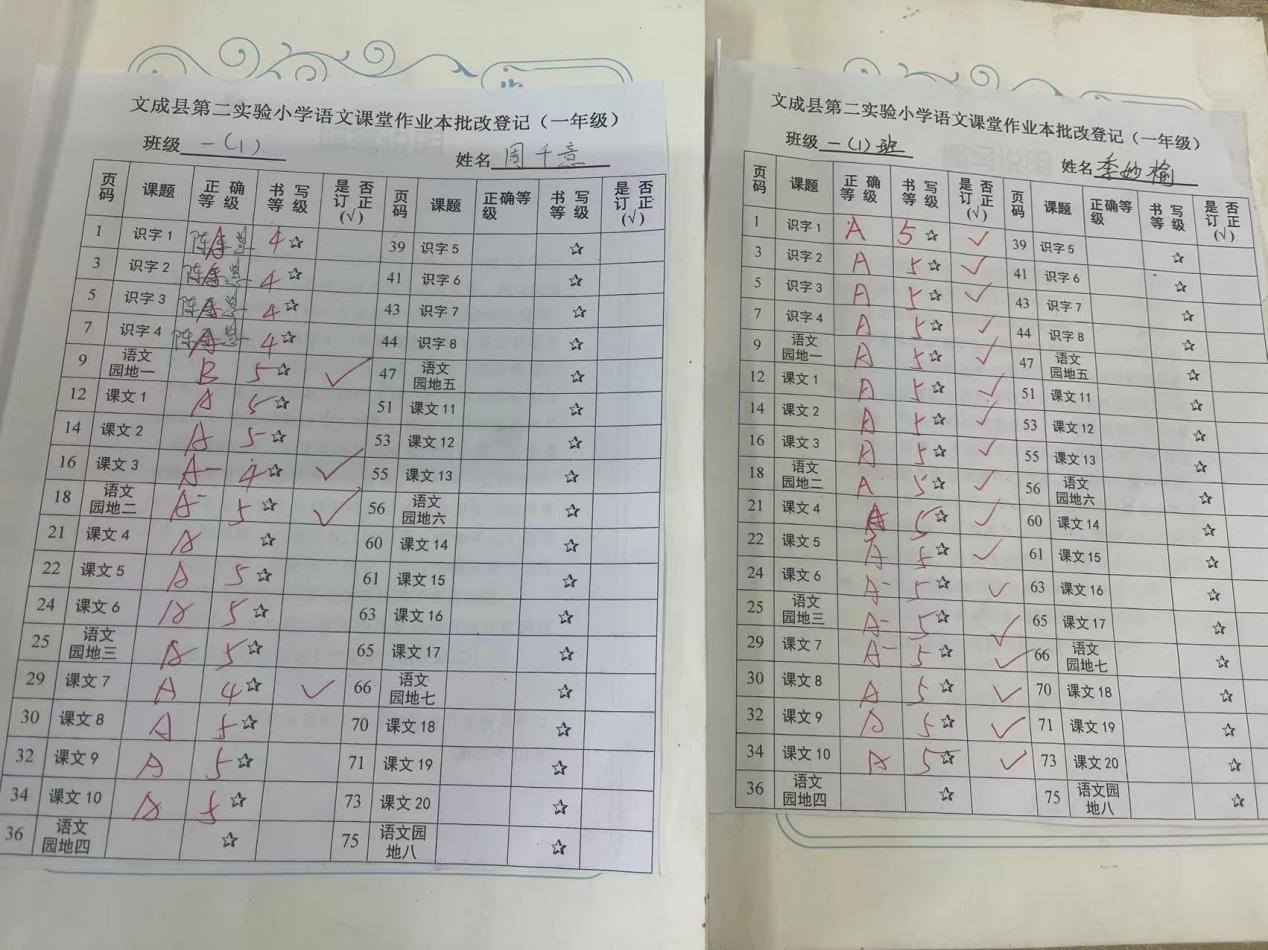 文成县第二实验小学语文课堂作业本批改登记（一年级）
班级 一（1） 姓名 周千意
页码 课题 正确等级 书写等级 是否订正(√) 页码 课题 正确等级 书写等级 是否订正(√)
1 识字1 A 4☆ 39 识字5 ☆
3 识字2 A 4☆ 41 识字6 ☆
5 识字3 A 4☆ 43 识字7 ☆
7 识字4 A 4☆ 44 识字8 ☆
9 语文园地一 B 5☆ √ 47 语文园地五 ☆
12 课文1 A 5☆ 51 课文11 ☆
14 课文2 A 5☆ 53 课文12 ☆
16 课文3 A- 4☆ √ 55 课文13 ☆
18 语文园地二 A- 5☆ √ 56 语文园地六 ☆
21 课文4 A ☆ 60 课文14 ☆
22 课文5 A 5☆ 61 课文15 ☆
24 课文6 A 5☆ 63 课文16 ☆
25 语文园地三 A 5☆ 65 课文17 ☆
29 课文7 A 4☆ √ 66 语文园地七 ☆
30 课文8 A 5☆ 70 课文18 ☆
32 课文9 A 5☆ 71 课文19 ☆
34 课文10 A 5☆ 73 课文20 ☆
36 语文园地四 ☆ 75 语文园地八 ☆
文成县第二实验小学语文课堂作业本批改登记（一年级）
班级 一（1）班 姓名 李妙榆
页码 课题 正确等级 书写等级 是否订正(√) 页码 课题 正确等级 书写等级 是否订正(√)
1 识字1 A 5☆ √ 39 识字5 ☆
3 识字2 A 5☆ √ 41 识字6 ☆
5 识字3 A 5☆ √ 43 识字7 ☆
7 识字4 A 5☆ √ 44 识字8 ☆
9 语文园地一 A 5☆ √ 47 语文园地五 ☆
12 课文1 A 5☆ √ 51 课文11 ☆
14 课文2 A 5☆ √ 53 课文12 ☆
16 课文3 A 5☆ √ 55 课文13 ☆
18 语文园地二 A 5☆ √ 56 语文园地六 ☆
21 课文4 A 5☆ √ 60 课文14 ☆
22 课文5 A 5☆ √ 61 课文15 ☆
24 课文6 A- 5☆ √ 63 课文16 ☆
25 语文园地三 A- 5☆ √ 65 课文17 ☆
29 课文7 A- 5☆ √ 66 语文园地七 ☆
30 课文8 A 5☆ √ 70 课文18 ☆
32 课文9 A 5☆ √ 71 课文19 ☆
34 课文10 A 5☆ √ 73 课文20 ☆
36 语文园地四 ☆ 75 语文园地八 ☆